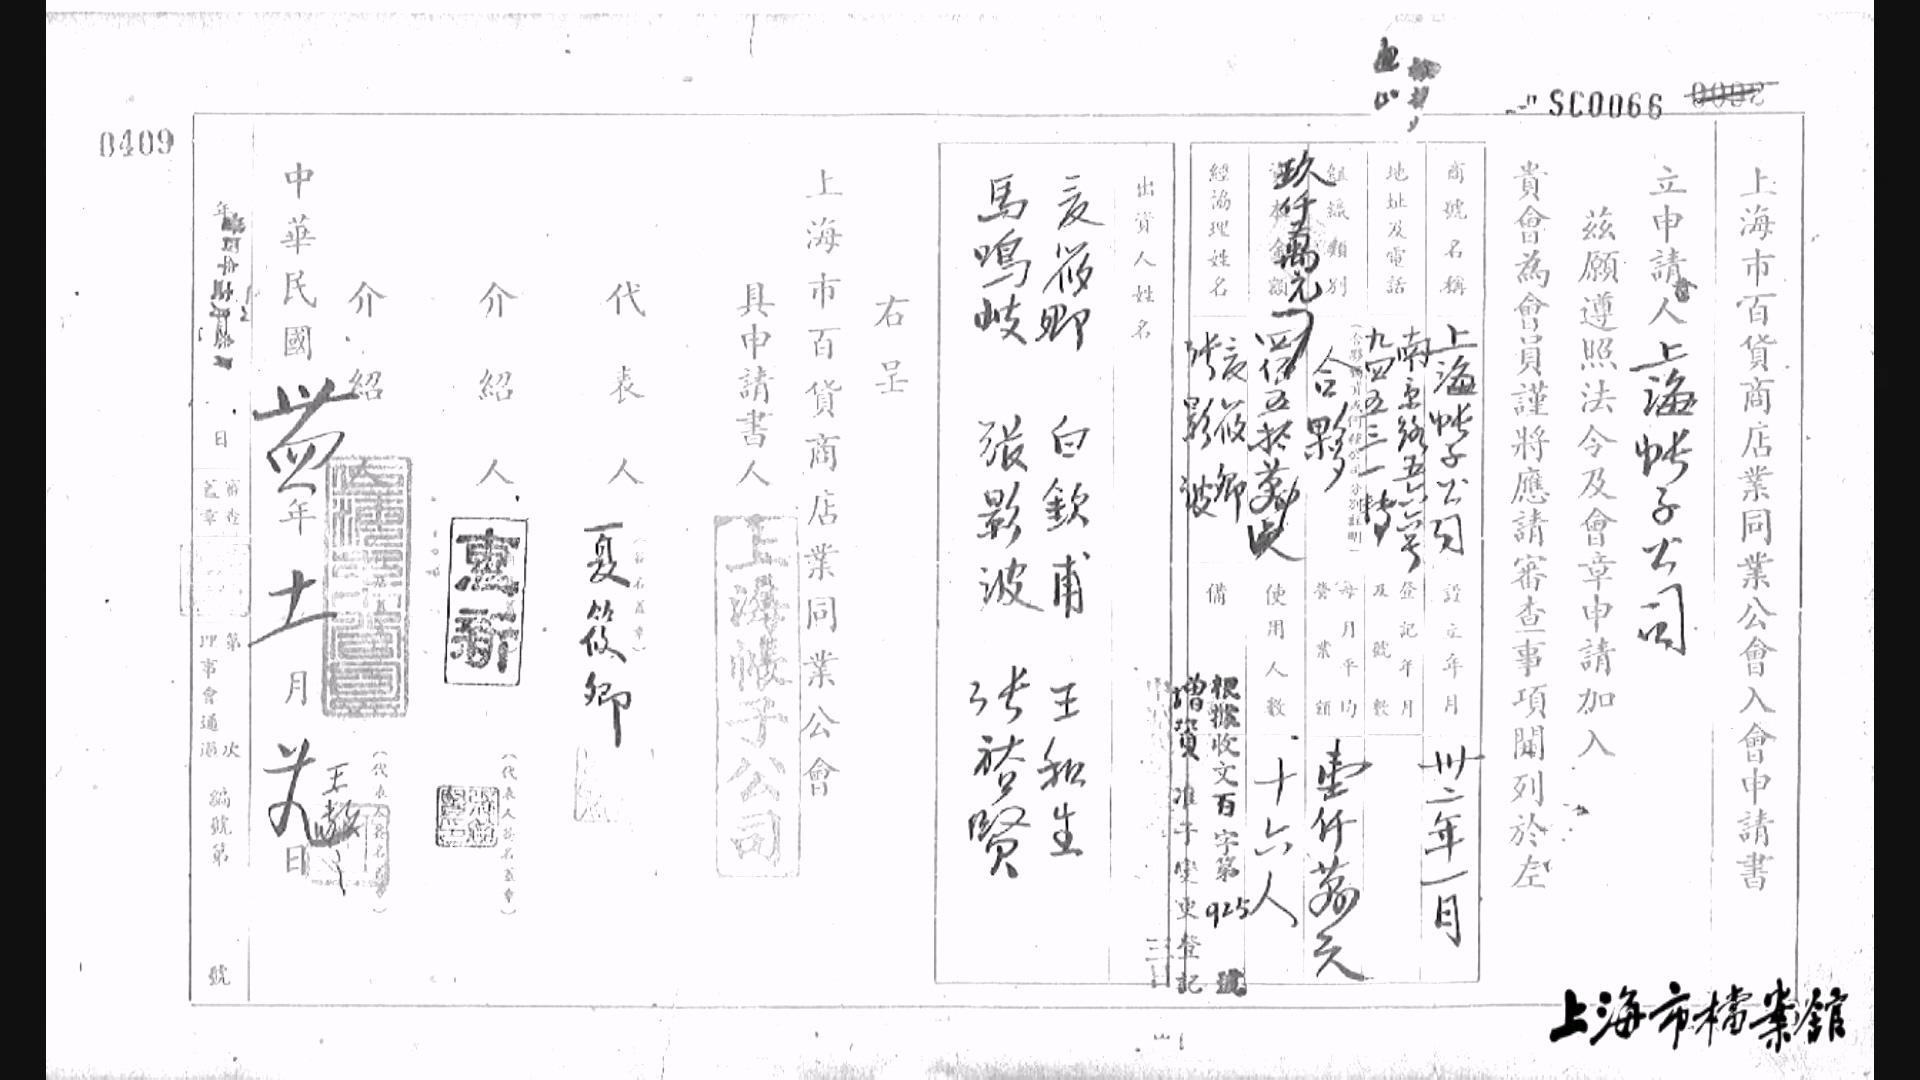 SC0066
0409
上海市百貨商店業同業公會入會申請書
立申請人上海帐子公司
茲願遵照法令及會章申請加入
貴會為會員謹將應請審查事項開列於左
商號名稱
上海帐子公司
設立年月
卅二年一月
地址及電話
南京路五六六号
九四五三一轉
登記年月及號數
組織類別
合夥
每月平均營業額
壹仟萬元
資本金額
玖仟萬元
四佰五拾萬元
使用人數
十六人
經協理姓名
夏筱卿
张影波
備
根據收文百字第925號
增資准予變更登記
出資人姓名
夏筱卿 白欽甫 王和生
馬鳴岐 張影波 张裕賢
右呈
上海市百貨商店業同業公會
具申請書人
上海帳子公司
代表人
夏筱卿
介紹人
惠新
(代表人簽名蓋章)
介紹人
(代表人簽名蓋章)
中華民國卅四年十一月廿日
年 日
審查
第 次理事會通過
編號第 號
上海市檔案館